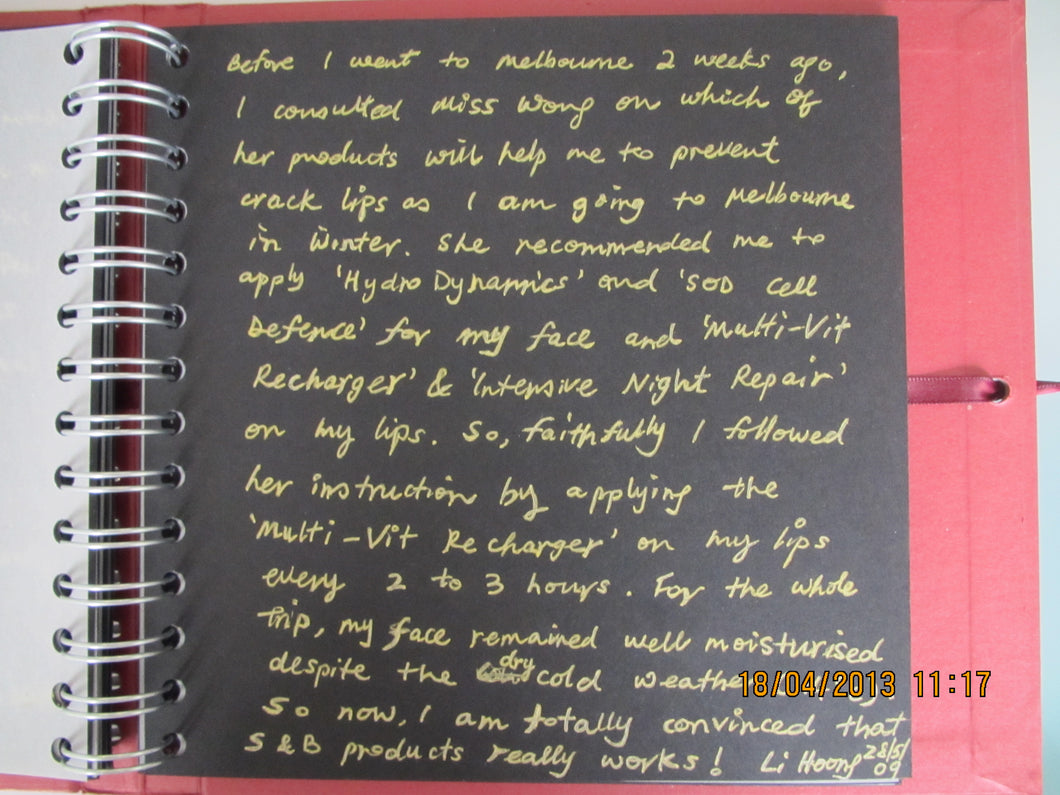 Before I went to Melbourne 2 weeks ago,
I consulted Miss Wong on which of
her products will help me to prevent
crack lips as I am going to Melbourne
in Winter. She recommended me to
apply 'Hydro Dynamics' and 'SOD Cell
Defence' for my face and 'Multi-Vit
Recharger' & 'Intensive Night Repair'
on my lips. So, faithfully I followed
her instruction by applying the
'Multi-Vit Recharger' on my lips
every 2 to 3 hours. For the whole
trip, my face remained well moisturised
despite the dry cold weather
18/04/2013 11:17
So now, I am totally convinced that
S & B products really works! Li Hoong 28/5/
09